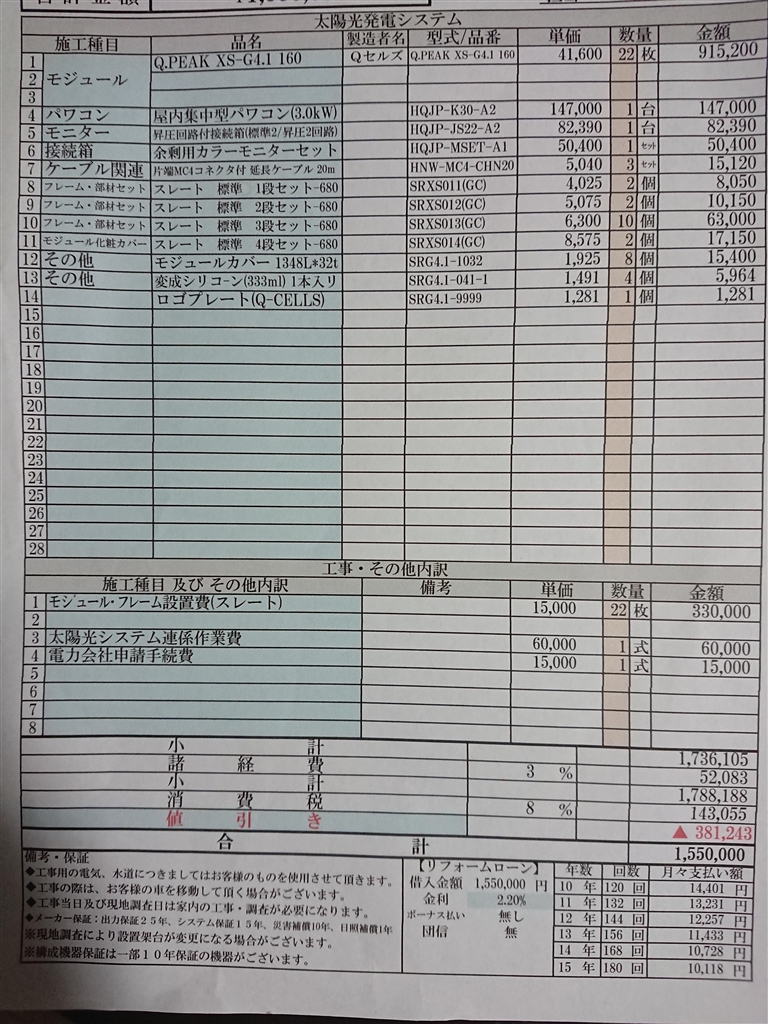 合計金額
太陽光発電システム
施工種目 品名 製造者名 型式/品番 単価 数量 金額
1 Q.PEAK XS-G4.1 160 Qセルズ Q.PEAK XS-G4.1 160 41,600 22 枚 915,200
2 モジュール
3
4 パワコン 屋内集中型パワコン(3.0kW) HQJP-K30-A2 147,000 1 台 147,000
5 モニター 昇圧回路付接続箱(標準2/昇圧2回路) HQJP-JS22-A2 82,390 1 台 82,390
6 接続箱 余剰用カラーモニターセット HQJP-MSET-A1 50,400 1 セット 50,400
7 ケーブル関連 片端MC4コネクタ付 延長ケーブル 20m HNW-MC4-CHN20 5,040 3 セット 15,120
8 フレーム・部材セット スレート 標準 1段セット-680 SRXS011(GC) 4,025 2 個 8,050
9 フレーム・部材セット スレート 標準 2段セット-680 SRXS012(GC) 5,075 2 個 10,150
10 フレーム・部材セット スレート 標準 3段セット-680 SRXS013(GC) 6,300 10 個 63,000
11 モジュール化粧カバー スレート 標準 4段セット-680 SRXS014(GC) 8,575 2 個 17,150
12 その他 モジュールカバー 1348L*32t SRG4.1-1032 1,925 8 個 15,400
13 その他 変成シリコーン(333ml) 1本入リ SRG4.1-041-1 1,491 4 個 5,964
14 ロゴプレート(Q-CELLS) SRG4.1-9999 1,281 1 個 1,281
15
16
17
18
19
20
21
22
23
24
25
26
27
28
工事・その他内訳
施工種目 及び その他内訳 備考 単価 数量 金額
1 モジュール・フレーム設置費(スレート) 15,000 22 枚 330,000
2
3 太陽光システム連係作業費 60,000 1 式 60,000
4 電力会社申請手続費 15,000 1 式 15,000
5
6
7
8
小計 1,736,105
諸経費 3 % 52,083
小計 1,788,188
消費税 8 % 143,055
値引き ▲ 381,243
合計 1,550,000
備考・保証
◆工事用の電気、水道につきましてはお客様のものを使用させて頂きます。
◆工事の際は、お客様の車を移動して頂く場合がございます。
◆工事当日及び現地調査日は家内の工事・調査が必要になります。
◆メーカー保証：出力保証25年、システム保証15年、災害補償10年、日照補償1年
※現地調査により設置架台が変更になる場合がございます。
※構成機器保証は一部10年保証の機器がございます。
【リフォームローン】
借入金額 1,550,000 円
金利 2.20%
ボーナス払い 無し
団信 無
年数 回数 月々支払い額
10 年 120 回 14,401 円
11 年 132 回 13,231 円
12 年 144 回 12,257 円
13 年 156 回 11,433 円
14 年 168 回 10,728 円
15 年 180 回 10,118 円